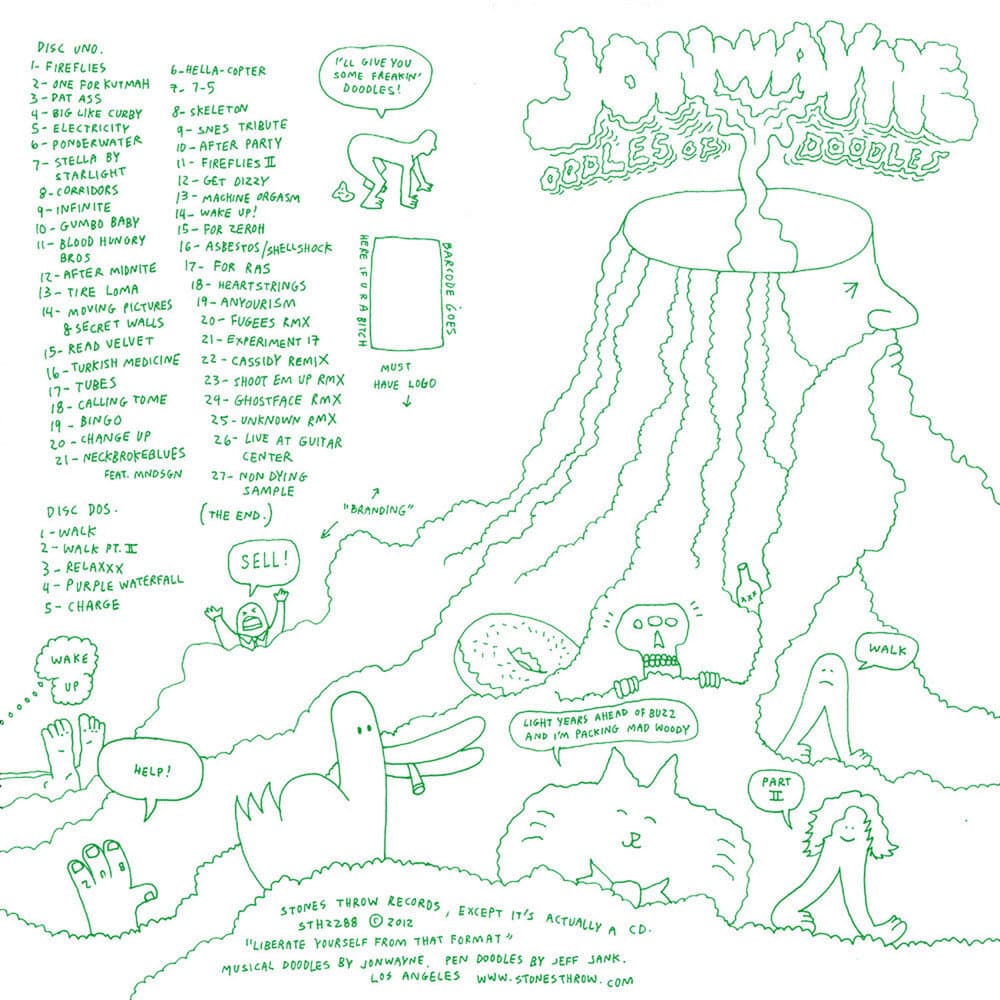 JONWAYNE
OODLES OF DOODLES
DISC UNO.
1- FIREFLIES
2- ONE FOR KUTMAH
3- PAT ASS
4- BIG LIKE CURBY
5- ELECTRICITY
6- PONDERWATER
7- STELLA BY
STARLIGHT
8- CORRIDORS
9- INFINITE
10- GUMBO BABY
11- BLOOD HUNGRY
BROS
12- AFTER MIDNITE
13- TIRE LOMA
14- MOVING PICTURES
& SECRET WALLS
15- READ VELVET
16- TURKISH MEDICINE
17- TUBES
18- CALLING TO ME
19- BINGO
20- CHANGE UP
21- NECKBROKEBLUES
FEAT. MNDSGN
DISC DOS.
1- WALK
2- WALK PT. II
3- RELAXXX
4- PURPLE WATERFALL
5- CHARGE
6- HELLA-COPTER
7- 7-5
8- SKELETON
9- SNES TRIBUTE
10- AFTER PARTY
11- FIREFLIES II
12- GET DIZZY
13- MACHINE ORGASM
14- WAKE UP!
15- FOR ZEROH
16- ASBESTOS/SHELLSHOCK
17- FOR RAS
18- HEARTSTRINGS
19- ANYOURISM
20- FUGEES RMX
21- EXPERIMENT 17
22- CASSIDY REMIX
23- SHOOT EM UP RMX
24- GHOSTFACE RMX
25- UNKNOWN RMX
26- LIVE AT GUITAR
CENTER
27- NON DYING
SAMPLE
(THE END.)
I'LL GIVE YOU
SOME FREAKIN'
DOODLES!
BARCODE GOES
HERE IF U R A BITCH
MUST
HAVE LOGO
"BRANDING"
SELL!
WAKE
UP
HELP!
208
XXX
LIGHT YEARS AHEAD OF BUZZ
AND I'M PACKING MAD WOODY
WALK
PART
II
STONES THROW RECORDS, EXCEPT IT'S ACTUALLY A CD.
STH2288 © 2012
"LIBERATE YOURSELF FROM THAT FORMAT"
MUSICAL DOODLES BY JONWAYNE. PEN DOODLES BY JEFF JANK.
LOS ANGELES WWW.STONESTHROW.COM